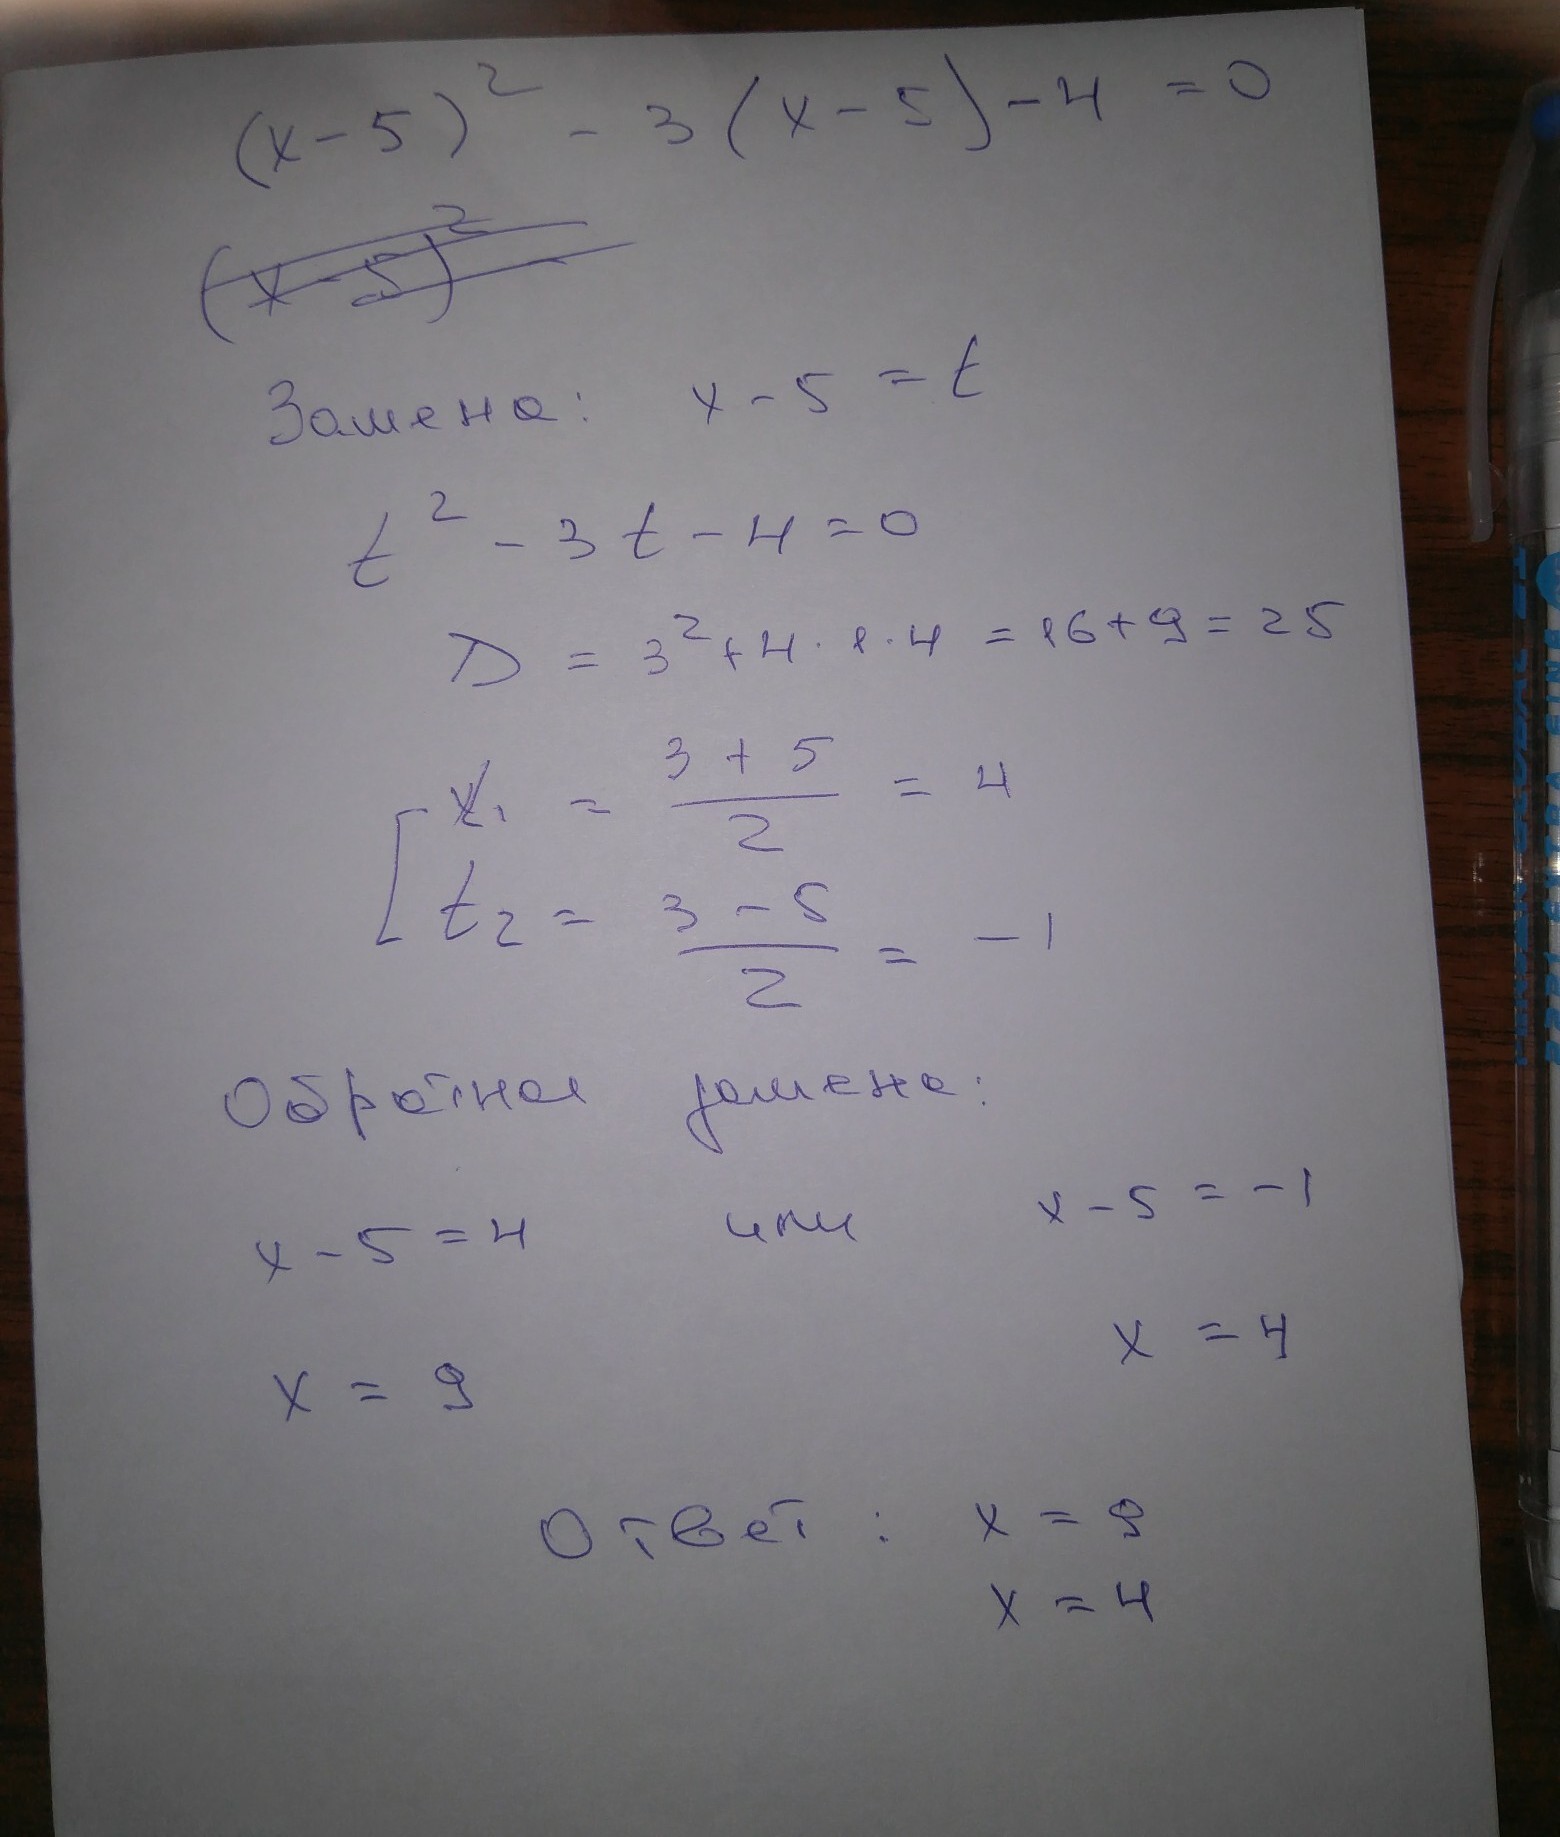 (x-5)² - 3(x-5) - 4 = 0
(x-5)²
Замена: x-5 = t
t² - 3t - 4 = 0
D = 3² + 4 · 1 · 4 = 16 + 9 = 25
t₁ = (3+5)/2 = 4
t₂ = (3-5)/2 = -1
Обратная замена:
x-5 = 4 или x-5 = -1
x = 9 x = 4
Ответ: x = 9
x = 4